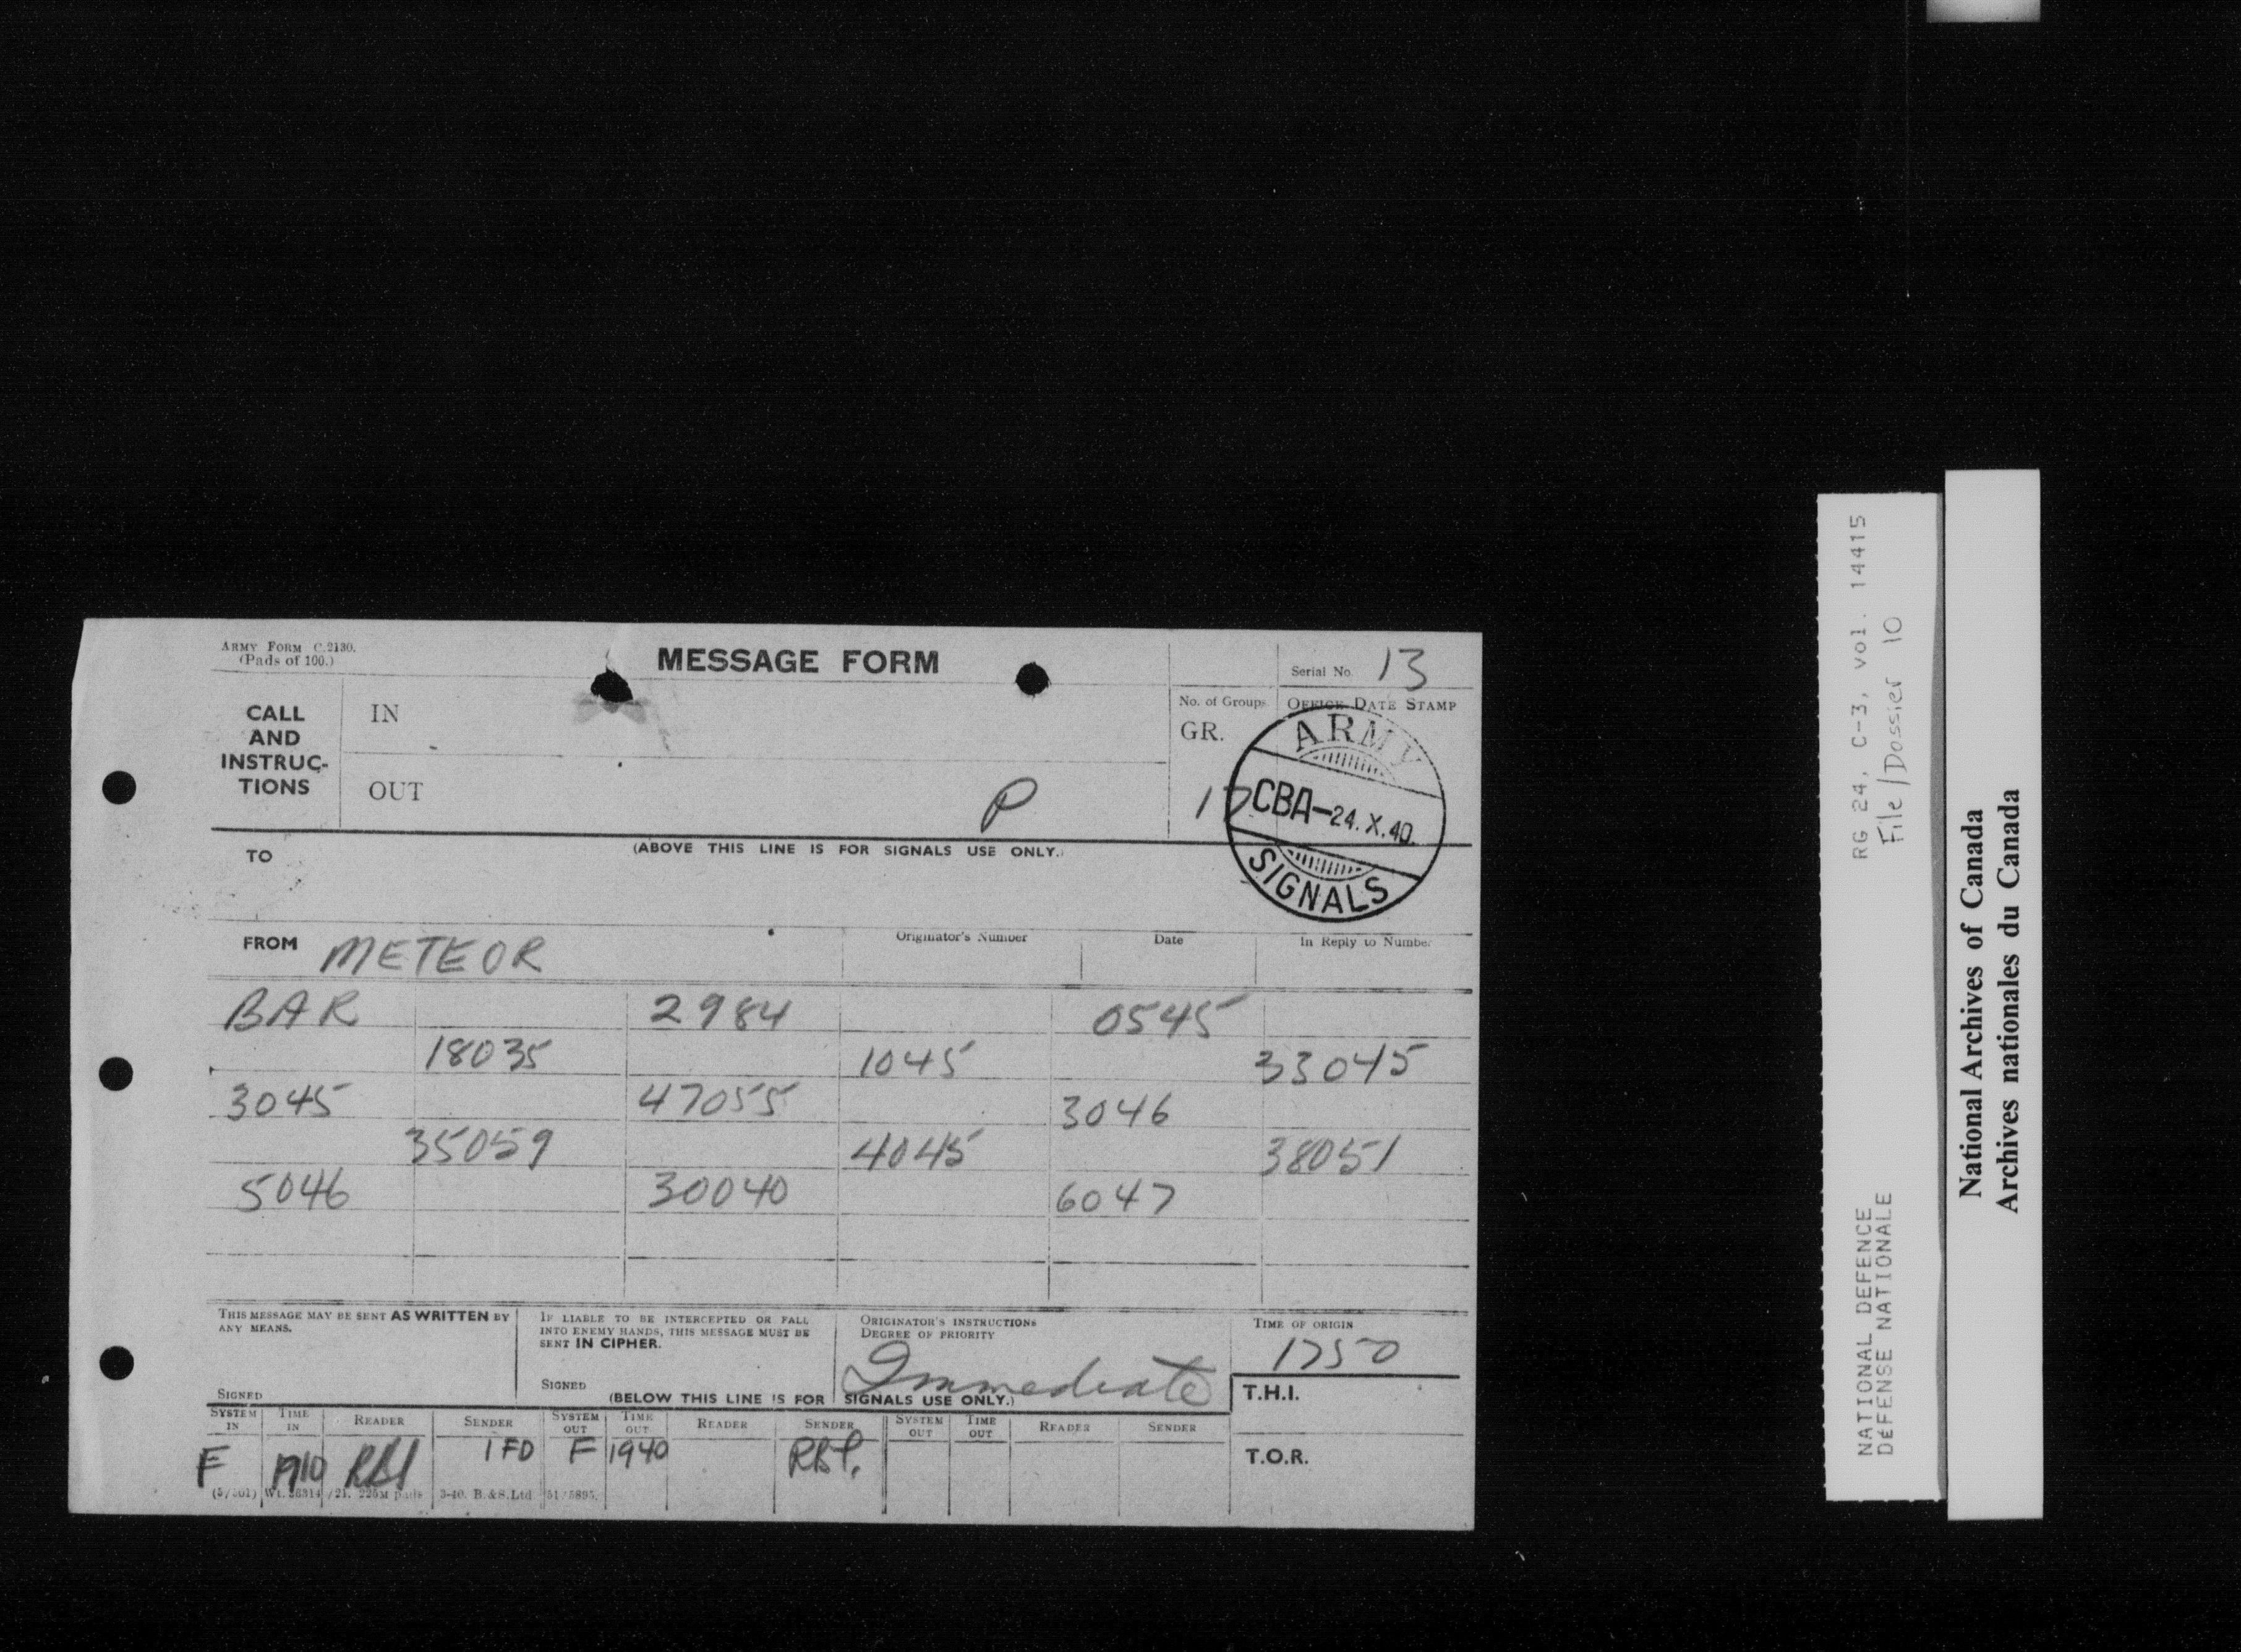 ARMY FORM C.2130.
(Pads of 100.)
MESSAGE FORM
Serial No. 13
CALL AND INSTRUC-TIONS
IN
OUT
P
No. of Groups
GR.
17
OFFICE DATE STAMP
ARMY
CBA-24.X.40.
SIGNALS
(ABOVE THIS LINE IS FOR SIGNALS USE ONLY.)
TO
FROM METEOR
Originator's Number
Date
In Reply to Number
BAR 2984 0545
18035 1045 33045
3045 47055 3046
35059 4045 38051
5046 30040 6047
THIS MESSAGE MAY BE SENT AS WRITTEN BY
ANY MEANS.
SIGNED
IF LIABLE TO BE INTERCEPTED OR FALL
INTO ENEMY HANDS, THIS MESSAGE MUST BE
SENT IN CIPHER.
SIGNED
ORIGINATOR'S INSTRUCTIONS
DEGREE OF PRIORITY
Immediate
TIME OF ORIGIN
1750
(BELOW THIS LINE IS FOR SIGNALS USE ONLY.)
T.H.I.
T.O.R.
SYSTEM IN TIME IN READER SENDER SYSTEM OUT TIME OUT READER SENDER SYSTEM OUT TIME OUT READER SENDER
F 1910 1 FD F 1940
3-40. B.&S.Ltd.
RG 24, C-3, vol. 14415
File/Dossier 10
NATIONAL DEFENCE
DÉFENSE NATIONALE
National Archives of Canada
Archives nationales du Canada